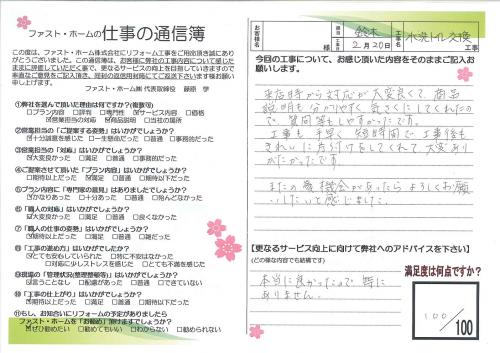 ファスト・ホームの仕事の通信簿
この度は、ファスト・ホーム株式会社にリフォーム工事をご用命頂き誠にあり
がとうございました。この通信簿は、お客様に弊社の工事内容について感じた
ままに評価していただくことで、更なるサービスの向上を目指していきますので
率直なご意見をご記入頂き、同封の返信用封筒にてご返送下さいます様お願い
申し上げます。
ファスト・ホーム㈱ 代表取締役 藤原 学
①弊社を選んで頂いた理由は何ですか?(複数可)
□プラン内容 □評判 □専門性 ☑サービス内容 □価格
☑営業担当の対応 ☑商品説明 □当社の場所
②営業担当の「ご提案する姿勢」はいかがでしょうか?
☑十分誠意を感じた □一生懸命だった □普通 □事務的だった
③営業担当の「対応」はいかがでしょうか?
☑大変良かった □満足 □普通 □事務的だった
④ご提案させて頂いた「プラン内容」はいかがでしょうか?
☑期待以上だった □満足 □普通 □期待以下だった
⑤プラン内容に「専門家の意見」はありましたでしょうか?
☑かなりあった □十分あった □普通 □ほとんどなかった
⑥「職人の対応」はいかがでしょうか?
☑大変良かった □満足 □普通 □良くなかった
⑦「職人の仕事の姿勢」はいかがでしょうか?
☑期待以上だった □満足 □普通 □雑だった
⑧「工事の進め方」はいかがでしたでしょうか?
☑とても安心していられた □特に不安はなかった
□対応に少しストレスを感じた □とても不満を感じた
⑨現場の「管理状況(整理整頓等)」はいかがでしょうか?
☑言うことなし □配慮があった □普通 □できていない
⑩「工事の仕上がり」はいかがでしょうか?
☑期待以上だった □満足 □普通 □期待以下だった
⑪もし、お知合いにリフォームの予定がありましたら
ファスト・ホームを「お勧め」頂けますでしょうか?
☑ぜひ勧めたい □勧めてもいい □わからない □勧められない
お客様名 鈴木 様 2月20日 工事名 水洗トイレ交換 工事
今回の工事について、お感じ頂いた内容をそのままご記入お
願いします。
来店時から対応が大変良くて、商品
説明も分かりやすく気さくにしてくれたの
で、質問等もしやすかったです。
工事も手早く短時間で工事後も
きれいに片付けをしてくれて大変あり
がたかったです。
またの機会があったらよろしくお願
いしたいと感じました。
【更なるサービス向上に向けて弊社へのアドバイスを下さい】
(どの様な内容でも結構です)
本当に良かったので特に
ありません。
満足度は何点ですか?
100/100